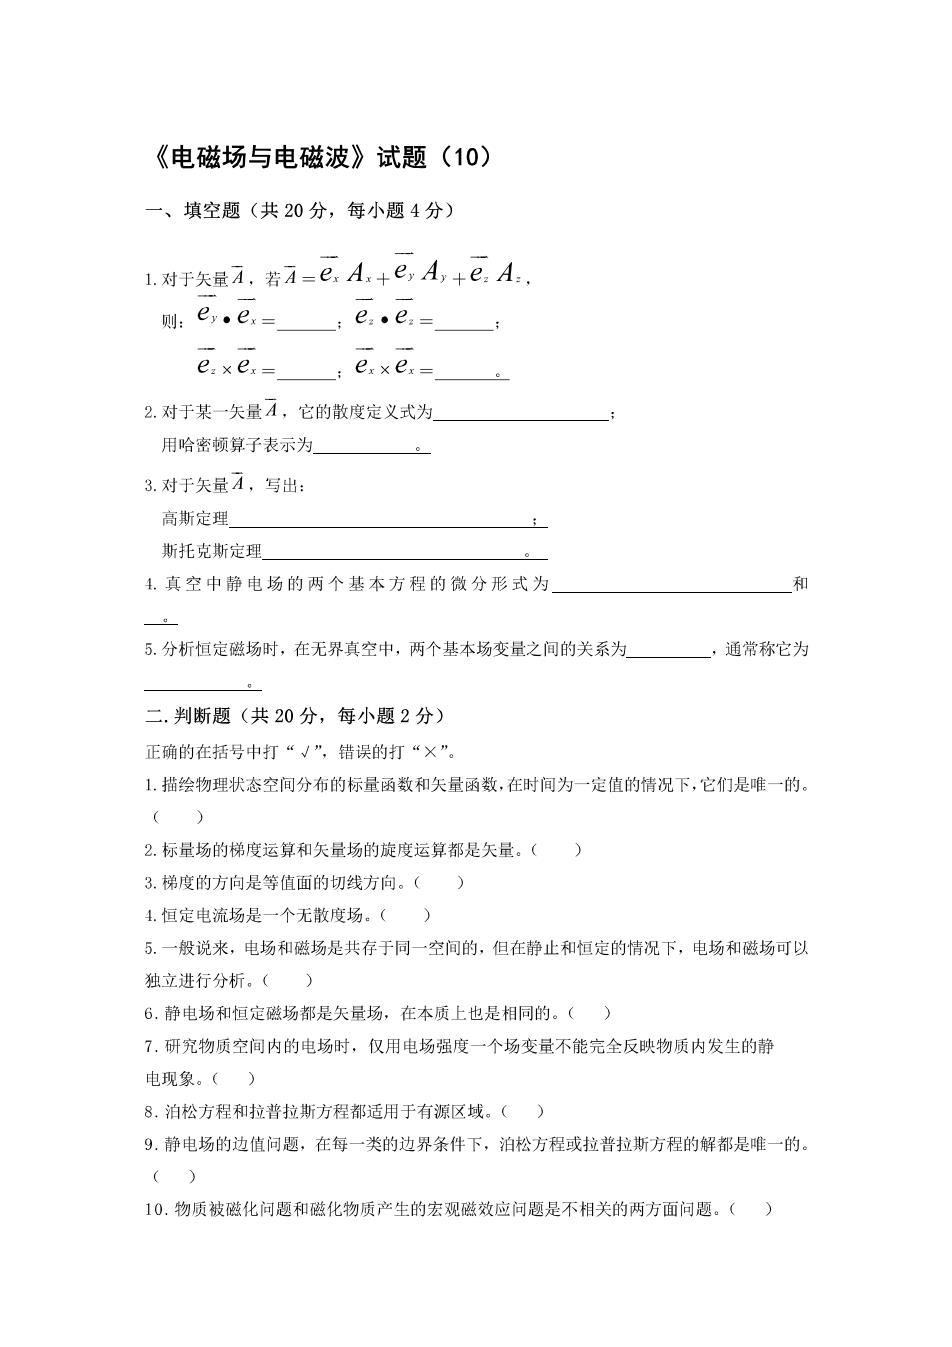 《电磁场与电磁波》试题（10）
一、填空题（共 20 分，每小题 4 分）
1.对于矢量A，若A＝exAx＋eyAy＋ezAz，
则：ey•ex＝＿＿＿；ez•ez＝＿＿＿；
ez×ex＝＿＿＿；ex×ex＝＿＿＿。
2.对于某一矢量A，它的散度定义式为＿＿＿＿＿＿＿＿；
用哈密顿算子表示为＿＿＿＿＿。
3.对于矢量A，写出：
高斯定理＿＿＿＿＿＿＿＿＿＿＿＿；
斯托克斯定理＿＿＿＿＿＿＿＿＿＿＿。
4.真空中静电场的两个基本方程的微分形式为＿＿＿＿＿＿＿＿＿＿和
＿。
5.分析恒定磁场时，在无界真空中，两个基本场变量之间的关系为＿＿＿＿，通常称它为
＿＿＿＿＿。
二.判断题（共 20 分，每小题 2 分）
正确的在括号中打“√”，错误的打“×”。
1.描绘物理状态空间分布的标量函数和矢量函数，在时间为一定值的情况下，它们是唯一的。
（　　）
2.标量场的梯度运算和矢量场的旋度运算都是矢量。（　　）
3.梯度的方向是等值面的切线方向。（　　）
4.恒定电流场是一个无散度场。（　　）
5.一般说来，电场和磁场是共存于同一空间的，但在静止和恒定的情况下，电场和磁场可以
独立进行分析。（　　）
6.静电场和恒定磁场都是矢量场，在本质上也是相同的。（　　）
7.研究物质空间内的电场时，仅用电场强度一个场变量不能完全反映物质内发生的静
电现象。（　　）
8.泊松方程和拉普拉斯方程都适用于有源区域。（　　）
9.静电场的边值问题，在每一类的边界条件下，泊松方程或拉普拉斯方程的解都是唯一的。
（　　）
10.物质被磁化问题和磁化物质产生的宏观磁效应问题是不相关的两方面问题。（　　）